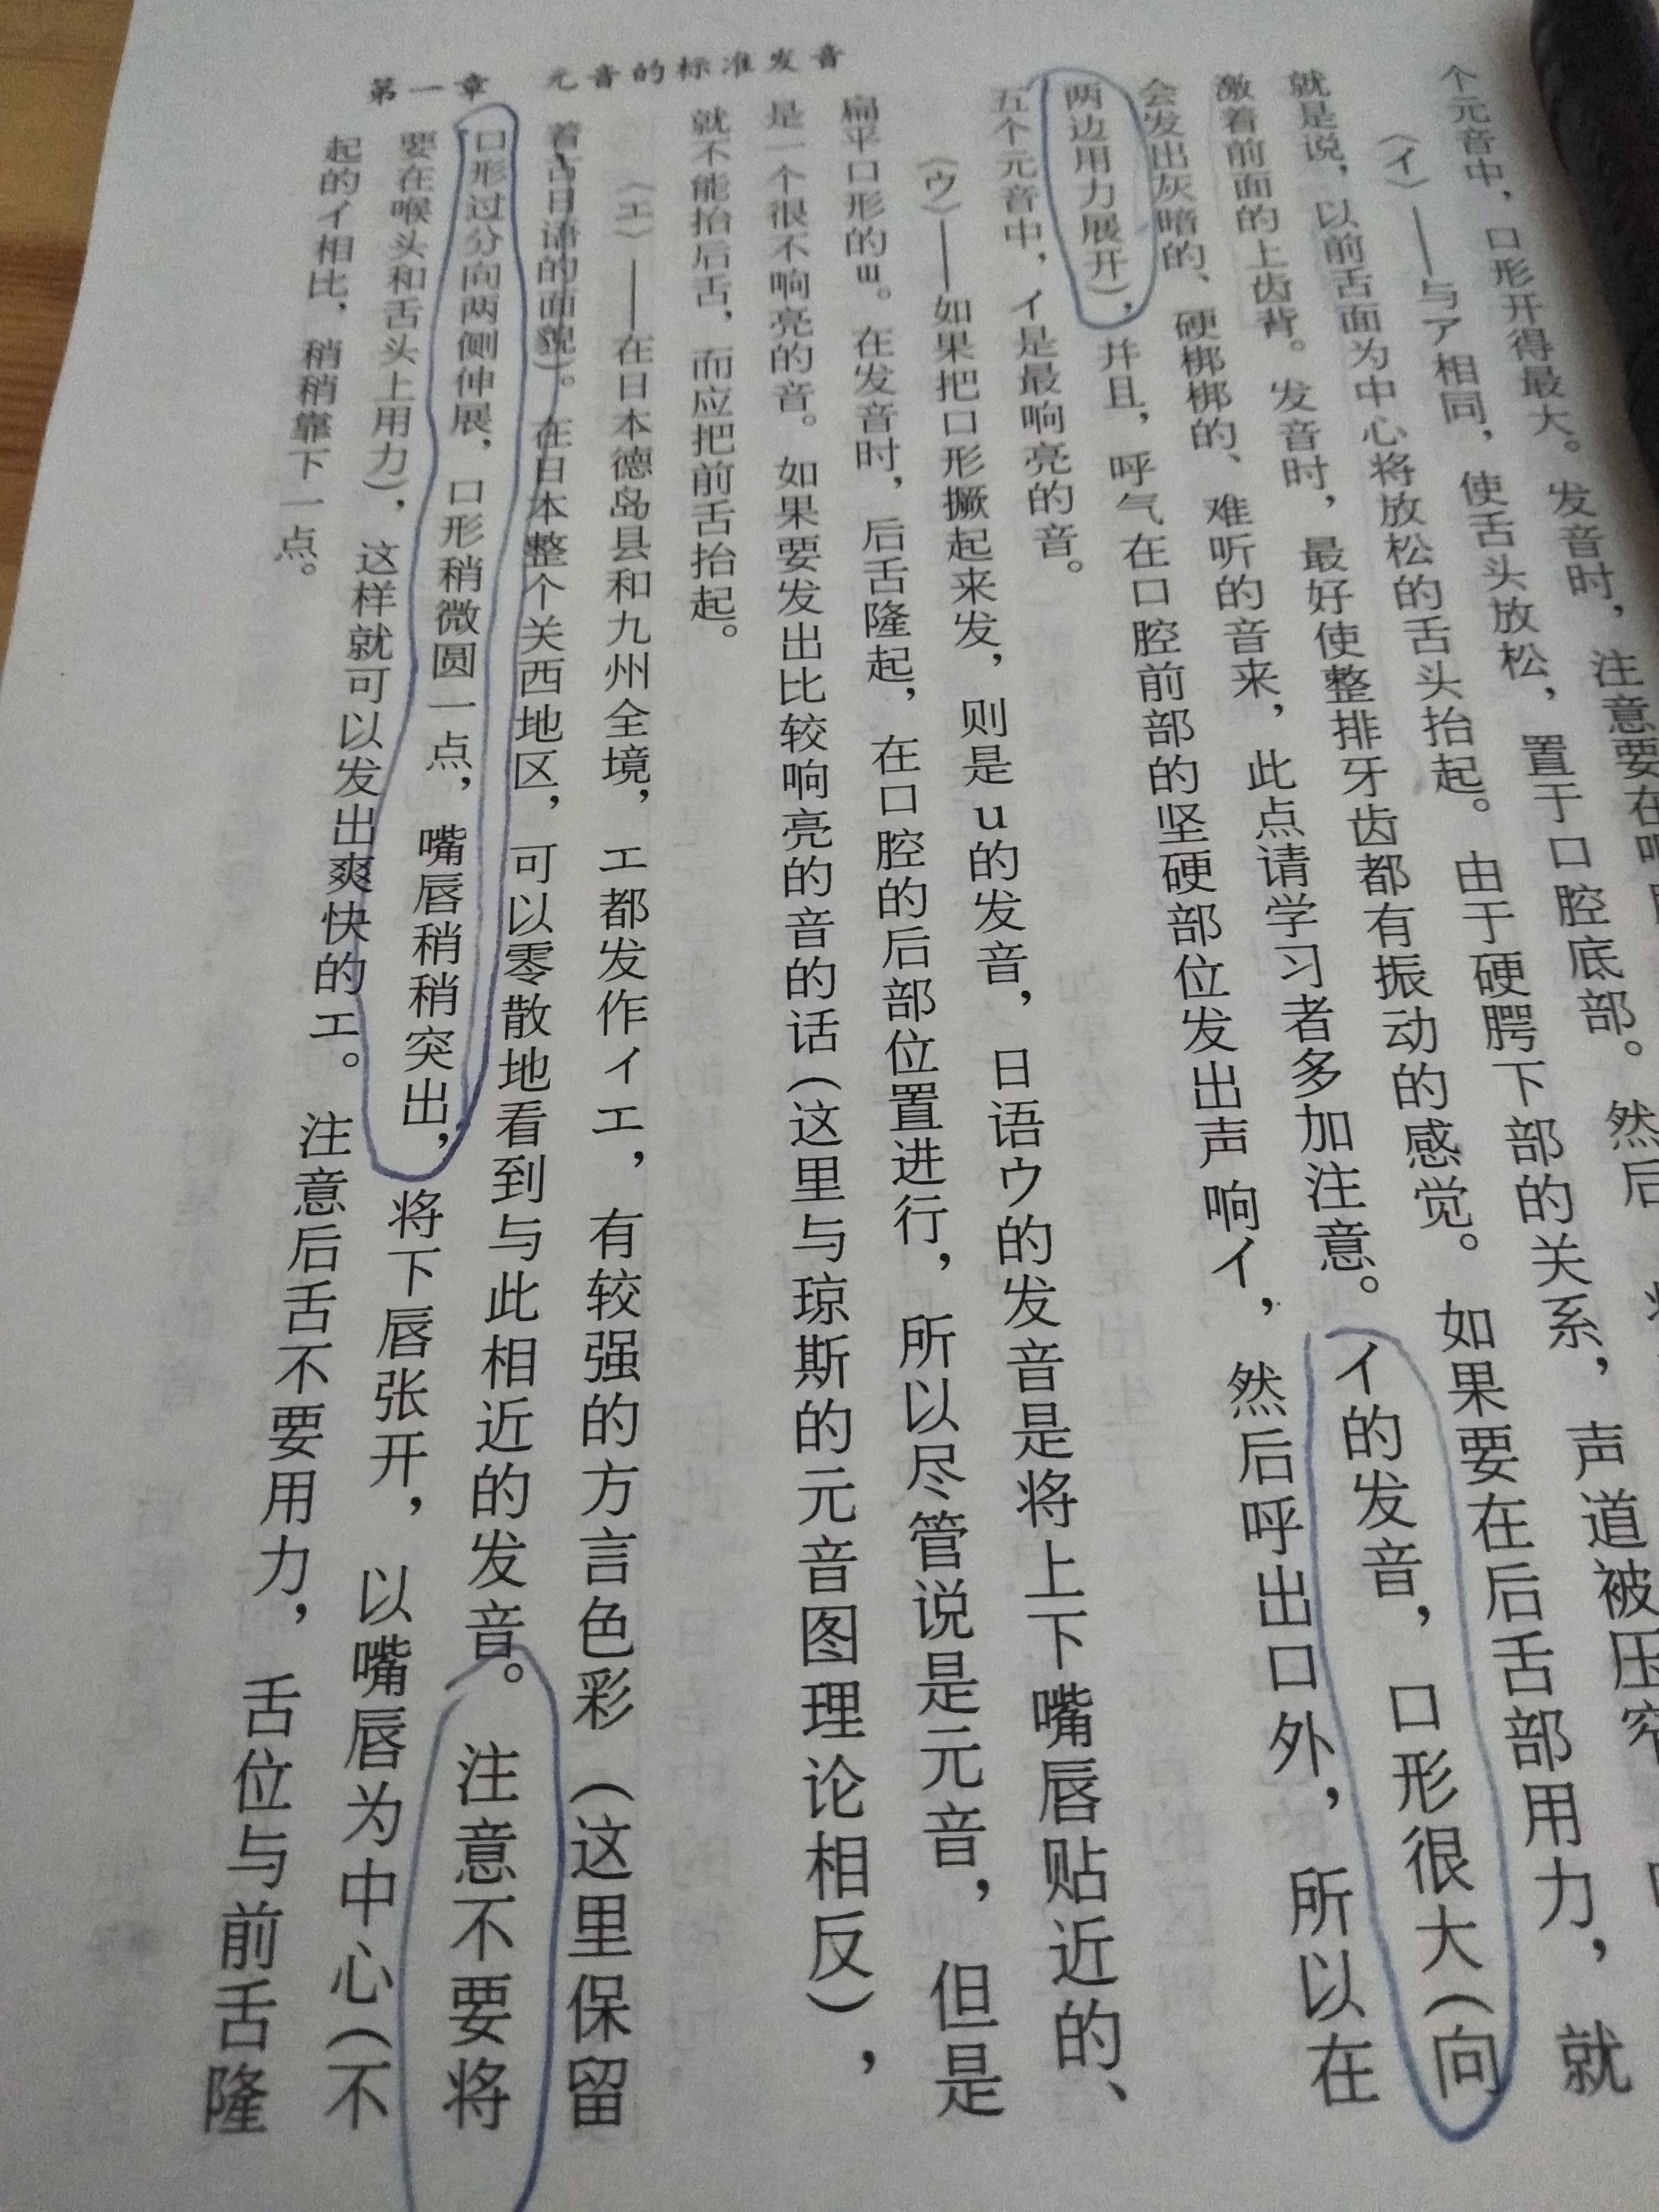 第一章 元音的标准发音
个元音中，口形开得最大。发音时，注意要在
（イ）——与ア相同，使舌头放松，置于口腔底部。然后
就是说，以前舌面为中心将放松的舌头抬起。由于硬腭下部的关系，声道被压窄
激着前面的上齿背。发音时，最好使整排牙齿都有振动的感觉。如果要在后舌部用力，就
会发出灰暗的、硬梆梆的、难听的音来，此点请学习者多加注意。イ的发音，口形很大(向
两边用力展开)，并且，呼气在口腔前部的坚硬部位发出声响イ，然后呼出口外，所以在
五个元音中，イ是最响亮的音。
（ウ）——如果把口形撅起来发，则是u的发音，日语ウ的发音是将上下嘴唇贴近的、
扁平口形的ɯ。在发音时，后舌隆起，在口腔的后部位置进行，所以尽管说是元音，但是
是一个很不响亮的音。如果要发出比较响亮的音的话(这里与琼斯的元音图理论相反)，
就不能抬后舌，而应把前舌抬起。
（エ）——在日本德岛县和九州全境，エ都发作イエ，有较强的方言色彩(这里保留
着古日语的面貌)。在日本整个关西地区，可以零散地看到与此相近的发音。注意不要将
口形过分向两侧伸展，口形稍微圆一点，嘴唇稍稍突出，将下唇张开，以嘴唇为中心(不
要在喉头和舌头上用力)，这样就可以发出爽快的エ。注意后舌不要用力，舌位与前舌隆
起的イ相比，稍稍靠下一点。